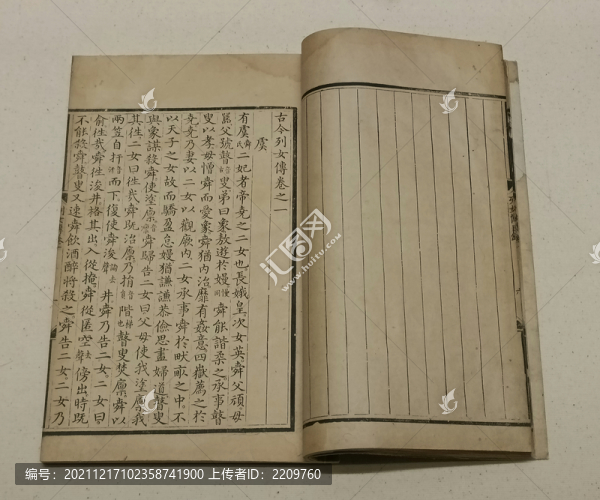 古今列女傳卷之一
虞
有虞二妃者帝堯之二女也長娥皇次女英舜父頑母
嚚父號瞽叟弟曰象敖遊於嫚舜能諧柔之承事瞽
叟以孝母憎舜而愛象舜猶內治靡有姦意四嶽薦之於
堯堯乃妻以二女以觀厥內二女承事舜於畎畝之中不
以天子之女故而驕盈怠嫚猶謙謙恭儉思盡婦道瞽叟
與象謀殺舜使塗廩舜歸告二女曰父母使我塗廩我
其往二女曰往哉舜既治廩乃捐階瞽叟焚廩舜以
兩笠自扞而下復使舜浚井舜乃告二女二女曰
俞往哉舜往浚井格其出入從掩舜從匿空傍出時既
不能殺舜瞽叟又速舜飲酒醉將殺之舜告二女二女乃
汇图网
www.huitu.com
编号：20211217102358741900 上传者ID：2209760